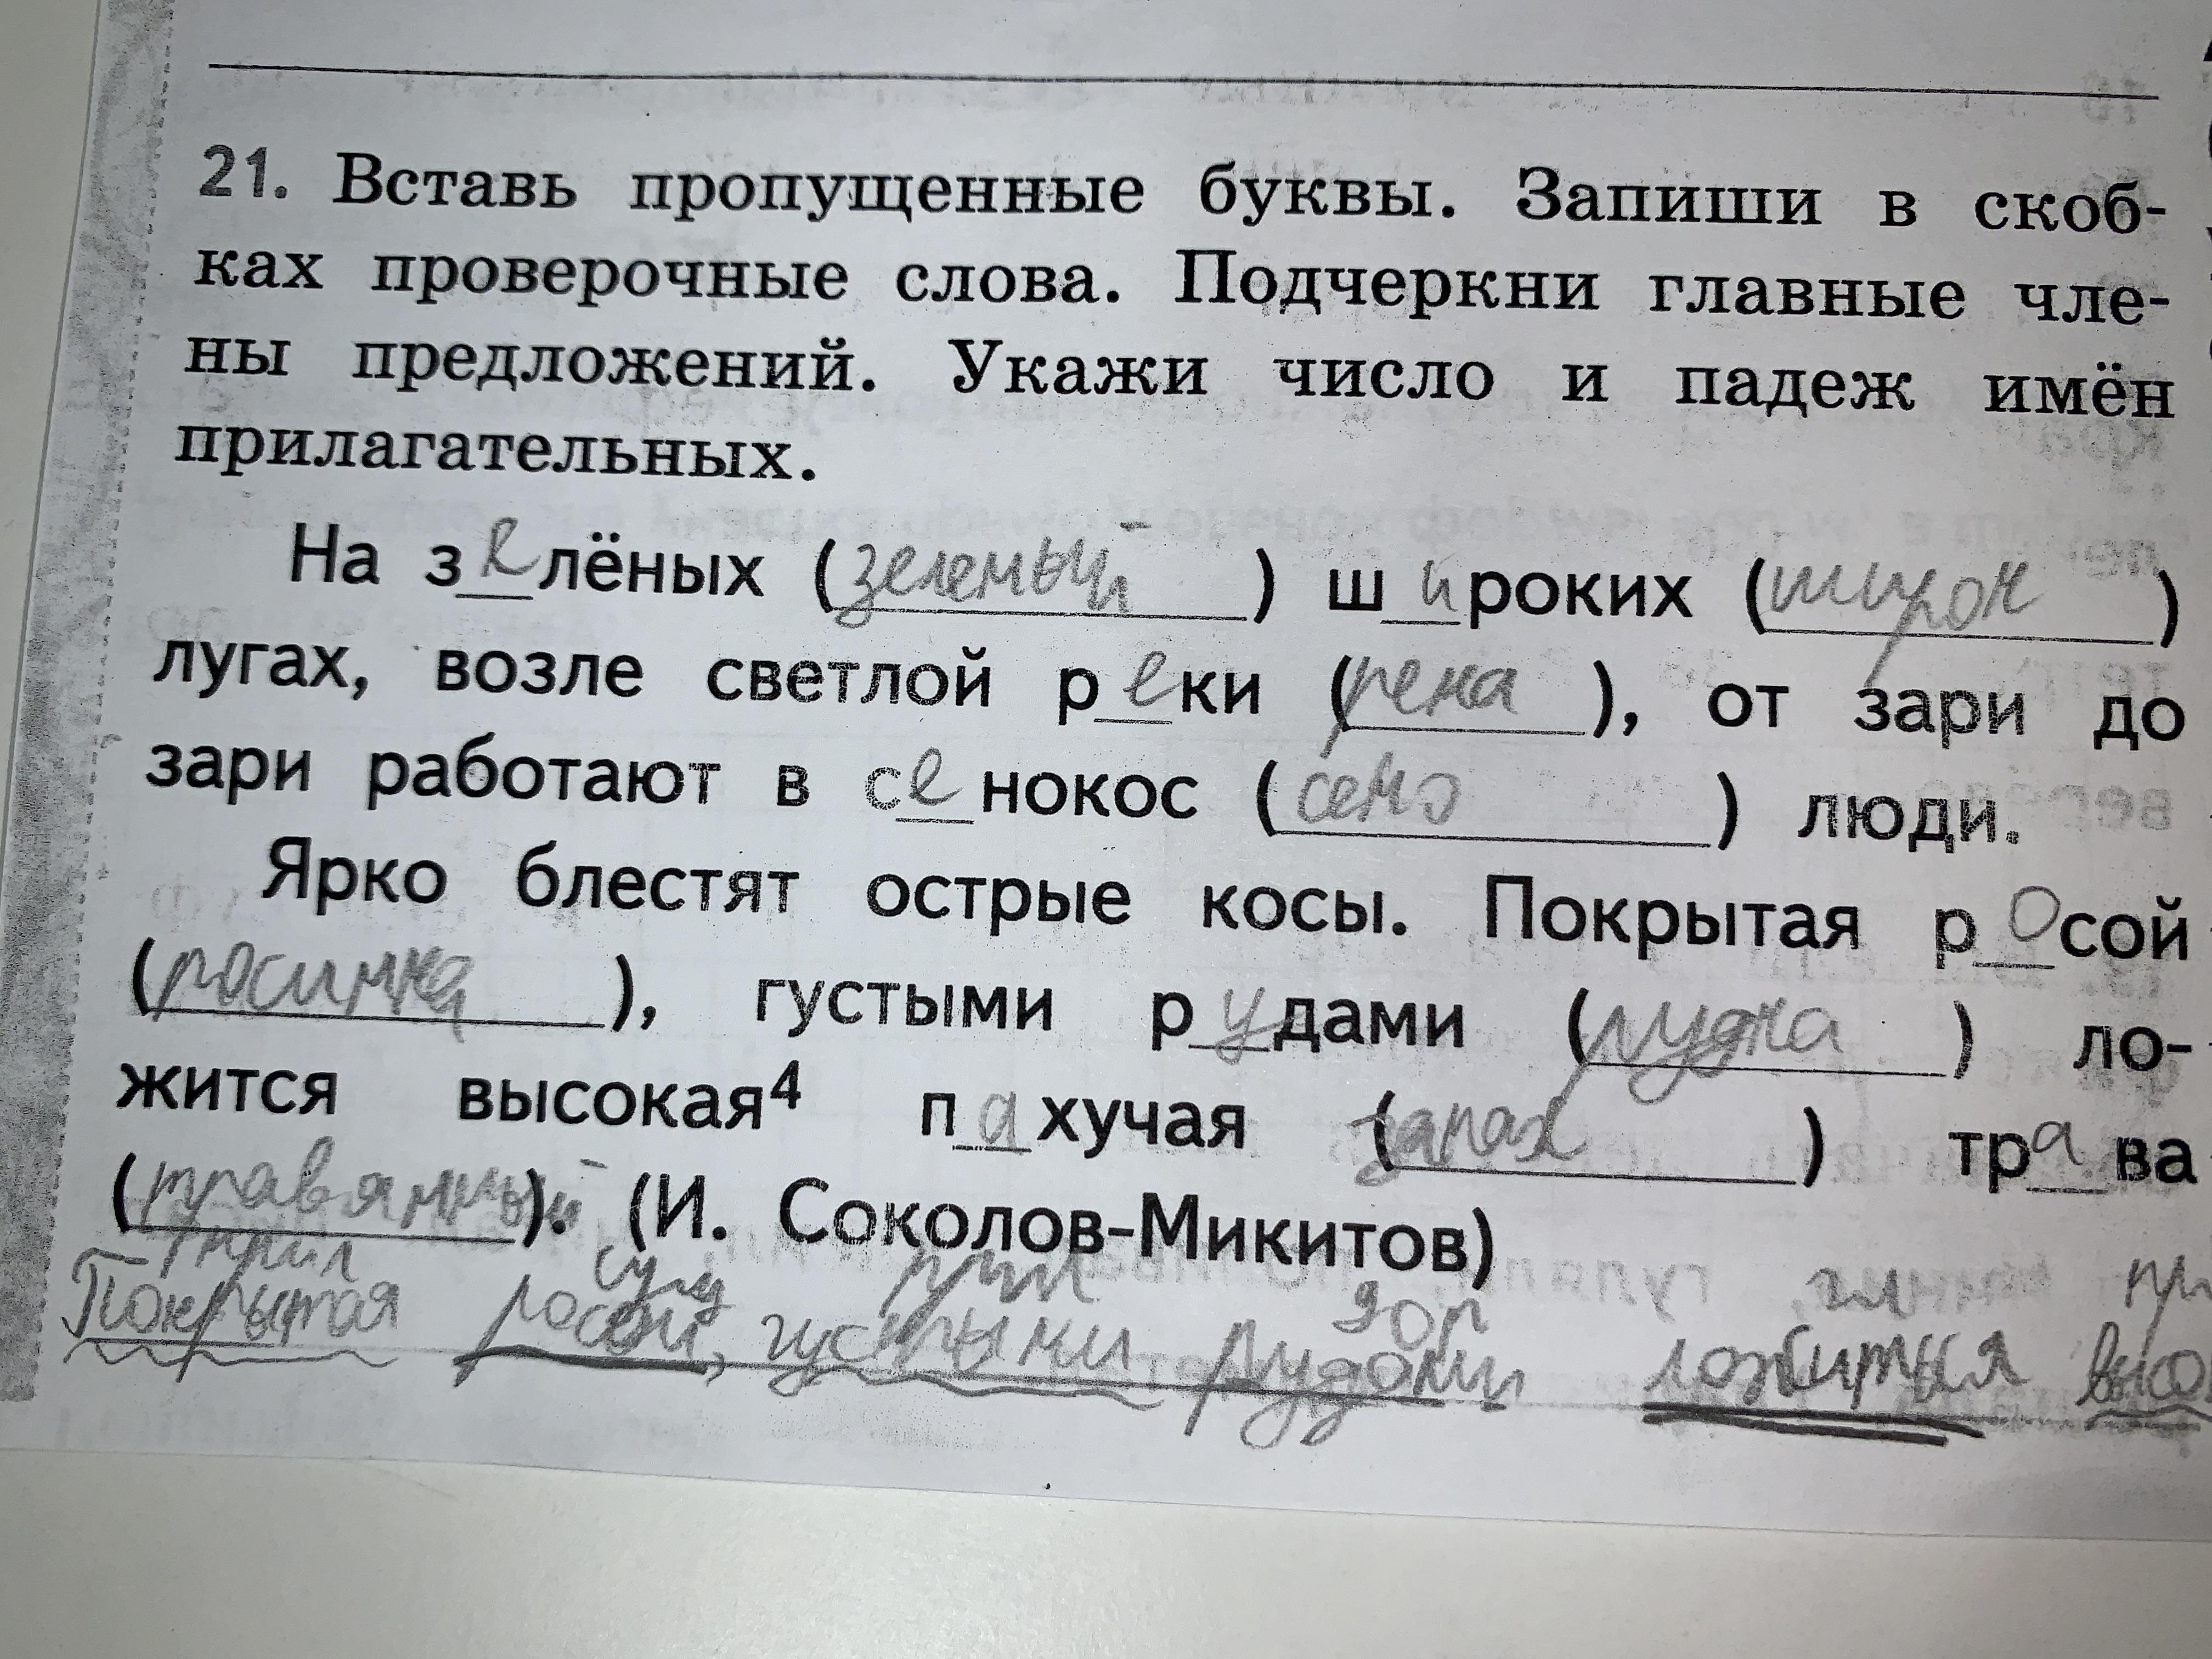 21. Вставь пропущенные буквы. Запиши в скоб-
ках проверочные слова. Подчеркни главные чле-
ны предложений. Укажи число и падеж имён
прилагательных.
На зелёных (зеленый) широких (широк)
лугах, возле светлой реки (река), от зари до
зари работают в сенокос (сено) люди.
Ярко блестят острые косы. Покрытая росой
(росинка), густыми рудами (рудка) ло-
жится высокая4 пахучая (запах) трава
(травянный). (И. Соколов-Микитов)
прил сущ прил доп гл пр
Покрытая росой, густыми рудоми ложиться высо